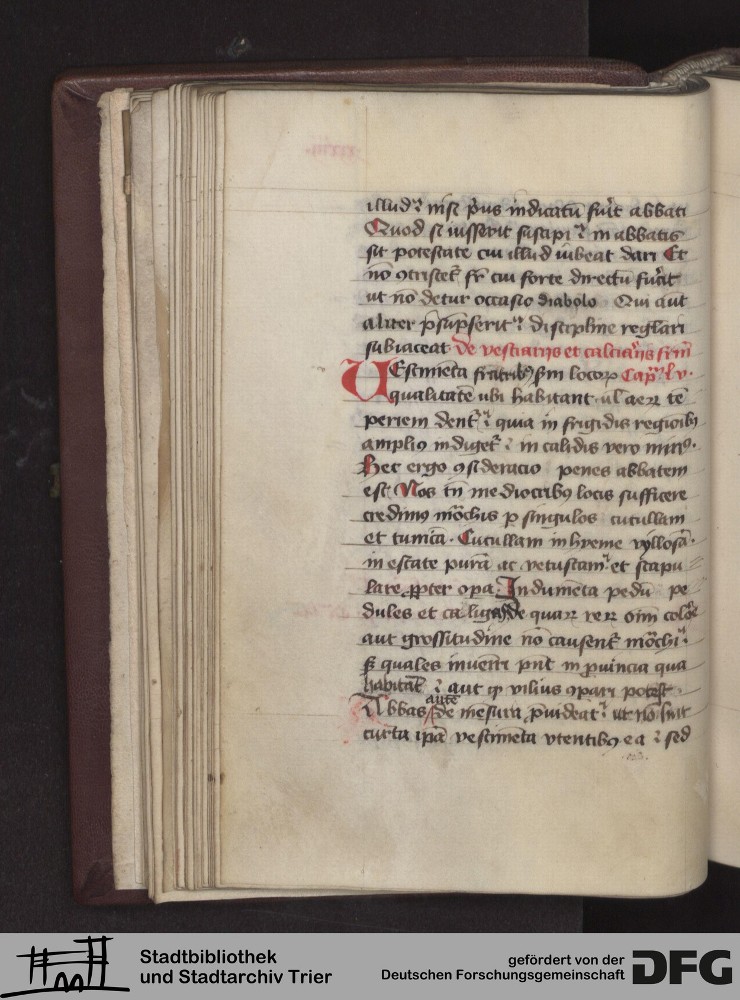 illud ⁊ nisi pͥus indicatū fuͥit abbati
Quod si iusserit suscipi ⁊ in abbatis
sit potestate cui illud iubeat dari Et
nō ꝯtristetͬ fr̄ cui forte directū fuͥit
ut nō detur occasio diabolo Qui aūt
aliter p̄sūpserit ⁊ discipline regl̄ari
subiaceat De vestiarijs et calciarijs frm̄
VEstimēta fratribꝰ sm̄ locoꝝ Capͫ lv·
qualitatē ubi habitant ul̄ aeꝝ tē
periem dentͬ ⁊ quia in frigidis regioībꝫ
ampliꝰ indigetͬ ⁊ in calidis vero minꝰ·
Hec ergo ꝯsideracio penes abbatem
est Nos tn̄ mediocribꝰ locis sufficere
credimꝰ mōchis p singulos cucullam
et tunicā· Cucullam in hyeme vyllosā·
in estate purā ac vetustam ⁊ et scapu
lare ꝓpter opa· Indumēta pedū pe
dules et caligas de quaꝝ reꝝ oīm coloͬe
aut grossitudine nō causentͬ mōchi ⁊
sꝫ quales inueīri pn̄t in ꝓuincia qua
habitāt ⁊ aut qͩ vilius ꝯpari potest·
Abbas autē de mēsura ꝓuideat ⁊ ut nō sint
curta ip̄a vestimēta vtentibꝰ ea ⁊ sed
Stadtbibliothek
und Stadtarchiv Trier
gefördert von der
Deutschen Forschungsgemeinschaft
DFG